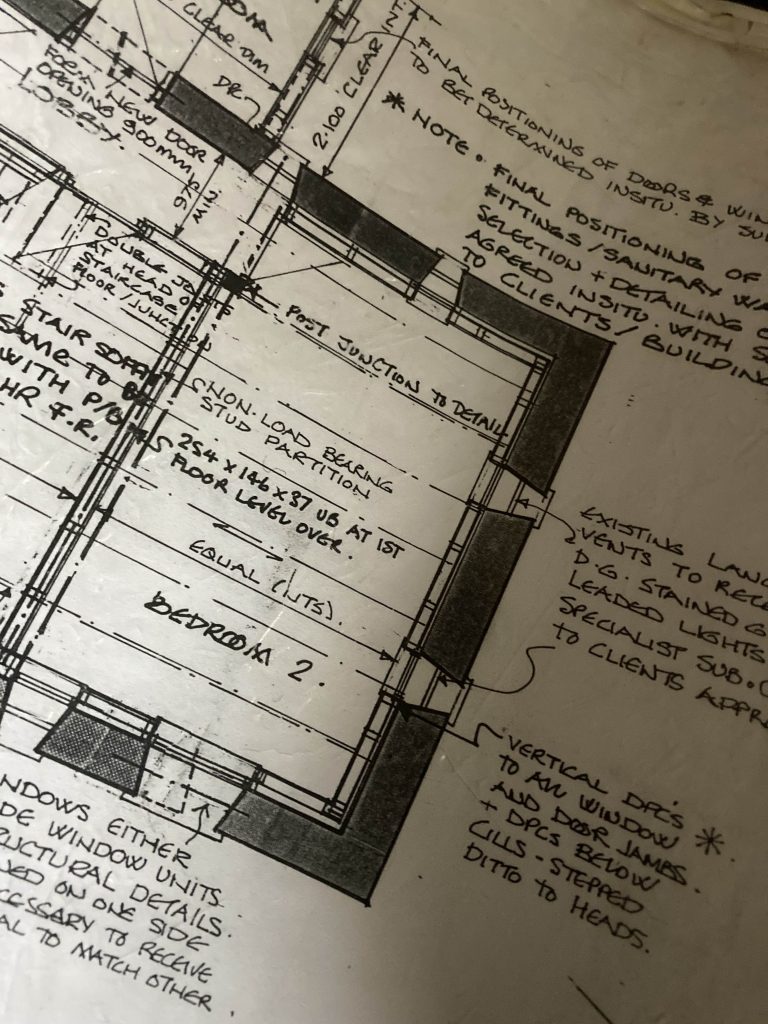 CLEAR DIM
DR
FOR A NEW DOOR
OPENING 900MM
LOBBY.
MIN.
2.100 CLEAR
FINAL POSITIONING OF DOORS & WIN
TO BET DETERMINED INSITU. BY SU
* NOTE. FINAL POSITIONING OF
FITTINGS/SANITARY WA
SELECTION + DETAILING
AGREED INSITU. WITH S
TO CLIENTS/BUILDING
DOUBLE
AT HEAD OF
STAIRCASE
FLOOR/
POST JUNCTION TO DETAIL
STAIR
SAME TO
WITH P/B
HR F.R.
NON-LOAD BEARING
STUD PARTITION
254 x 146 x 37 UB AT 1ST
FLOOR LEVEL OVER.
EQUAL (NTS).
BEDROOM 2.
EXISTING LANC
VENTS TO RECE
D.G. STAINED G
LEADED LIGHTS
SPECIALIST SUB.C
TO CLIENTS APPR
VERTICAL DPC'S
TO ALL WINDOW
AND DOOR JAMBS. *.
+ DPCS BELOW
CILLS - STEPPED
DITTO TO HEADS.
NDOWS EITHER
DE WINDOW UNITS.
RUCTURAL DETAILS.
ED ON ONE SIDE
CESSARY TO RECEIVE
AL TO MATCH OTHER.